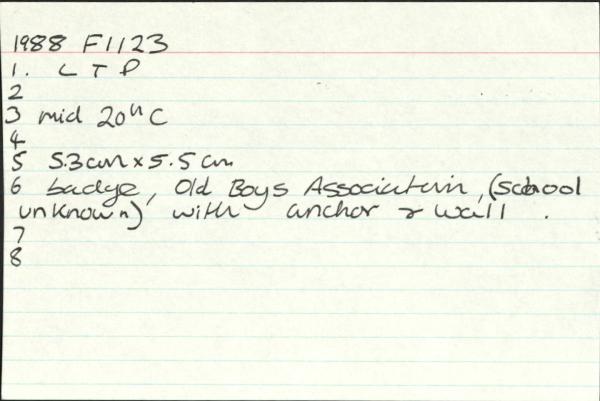 1988 F1123
1. L T P
2
3 mid 20th C
4
5 5.3cm x 5.5cm
6 badge, Old Boys Association, (school
unknown) with anchor & wall .
7
8